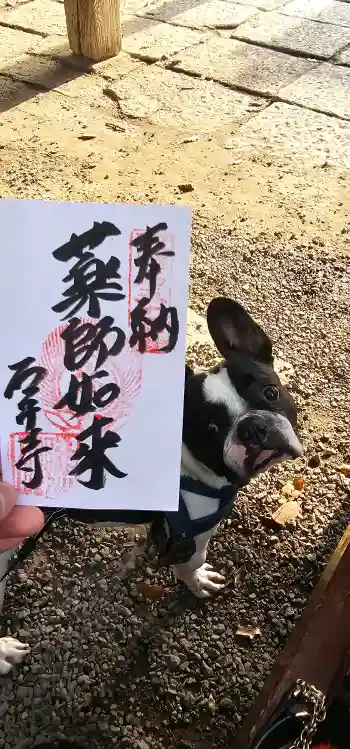 奉納
薬師如来
石井寺